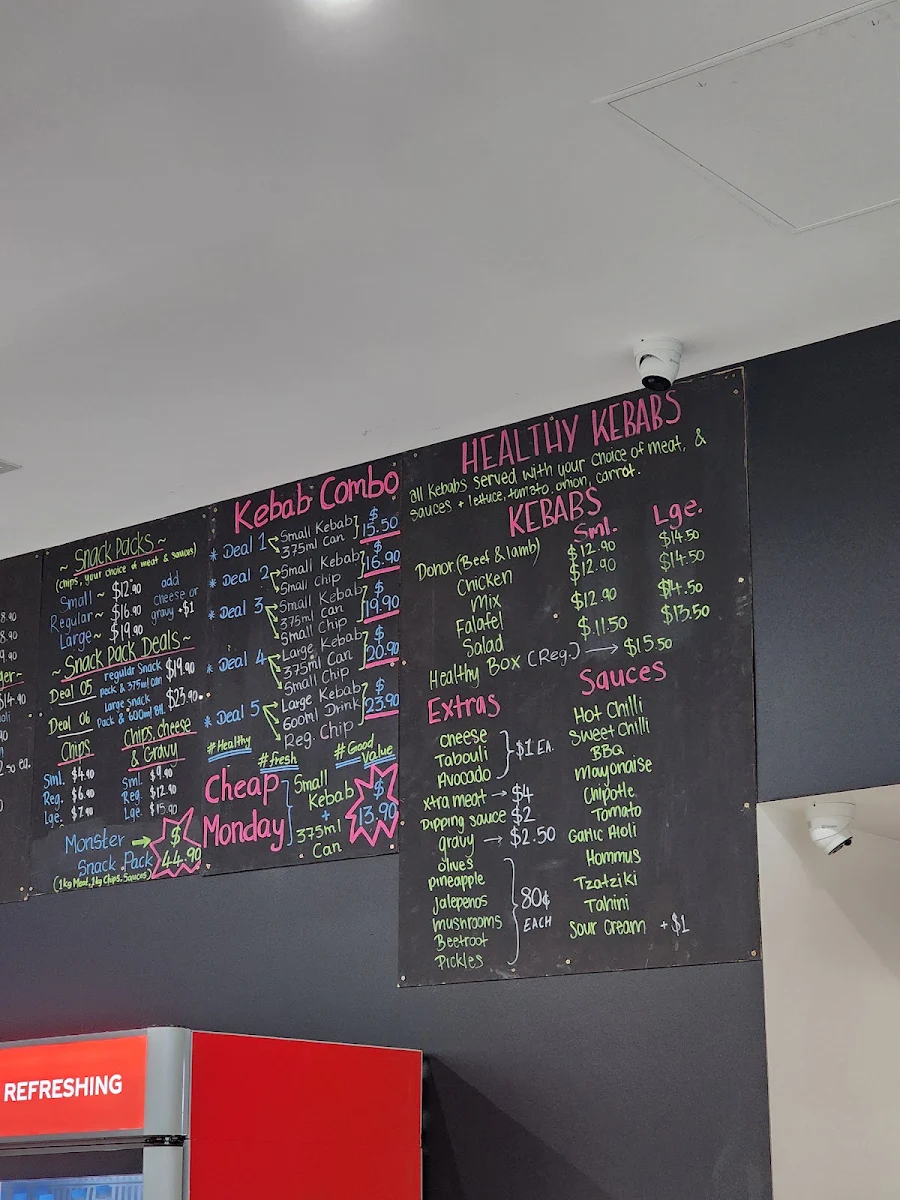 8.90
8.90
9.90
ger~
$14.90
oli
90
.50 ea.
~ Snack Packs ~
(chips, your choice of meat & sauces)
Small ~ $12.90
Regular ~ $16.90
Large ~ $19.90
add
cheese or
gravy +$1
~ Snack Pack Deals ~
Deal 05 regular Snack
pack & 375ml can $19.90
Deal 06 Large Snack
Pack & 600ml Btl. $23.90
Chips
Sml. $4.90
Reg. $6.90
Lge. $7.90
Chips, cheese
& Gravy
Sml $9.90
Reg $12.90
Lge $15.90
Monster
Snack Pack
$
44.90
(1kg Meat, 1kg Chips, Sauces)
Kebab Combo
* Deal 1 Small Kebab
375ml Can
$
15.50
* Deal 2 Small Kebab
Small Chip
$
16.90
* Deal 3 Small Kebab
375ml Can
Small Chip
$
19.90
* Deal 4 Large Kebab
375ml Can
Small Chip
$
20.90
* Deal 5 Large Kebab
600ml Drink
Reg. Chip
$
23.90
#Healthy
#fresh
#Good
Value
Cheap
Monday
Small
Kebab
+
375ml
Can
$
13.90
HEALTHY KEBABS
all kebabs served with your choice of meat, &
sauces + lettuce, tomato, onion, carrot.
KEBABS
Sml. Lge.
Donor (Beef & lamb) $12.90 $14.50
Chicken $12.90 $14.50
Mix $12.90 $14.50
Falafel $11.50 $13.50
Salad
Healthy Box (Reg.) → $15.50
Extras
cheese
Tabouli
Avocado
$1 EA.
xtra meat → $4
Dipping sauce $2
gravy → $2.50
olives
pineapple
Jalepenos
mushrooms
Beetroot
Pickles
80¢
EACH
Sauces
Hot Chilli
Sweet Chilli
BBQ
Mayonaise
Chipotle
Tomato
Garlic Aioli
Hommus
Tzatziki
Tahini
Sour Cream +$1
REFRESHING